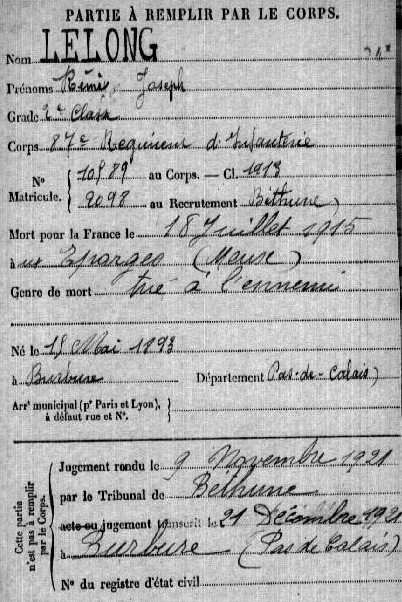 PARTIE À REMPLIR PAR LE CORPS.
Nom LELONG
Prénoms Rémi Joseph
Grade 2e Classe
Corps 87e Regiment d'Infanterie
N° Matricule. { 10589 au Corps. — Cl. 1913
2098 au Recrutement Béthune
Mort pour la France le 18 Juillet 1915
à ux Eparges (Meuse)
Genre de mort tué à l'ennemi
Né le 15 Mai 1893
à Burbure Département Pas-de-Calais
Arrt municipal (pr Paris et Lyon), à défaut rue et N°.
Cette partie n'est pas à remplir par le Corps.
Jugement rendu le 9 Novembre 1921
par le Tribunal de Béthune
acte ou jugement transcrit le 21 Décembre 1921
à Burbure (Pas de Calais)
N° du registre d'état civil